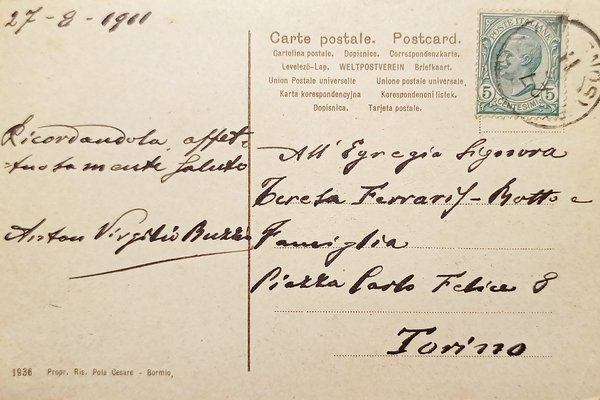 27-8-1911
Carte postale. Postcard.
Cartolina postale. Dopisnice. Correspondenzkarte.
Levelező-Lap. WELTPOSTVEREIN Briefkaart.
Union Postale universelle Unione postale universale.
Karta korespondencyjna Korespondencni listek.
Dopisnica. Tarjeta postale.
POSTE ITALIANE
5 CENTESIMI 5
Ricordandola affet-
tuosamente saluto
Virgilio
All'Egregia Signora
Teresa Ferraris-Botto e
Famiglia
Piazza Carlo Felice 8
Torino
1936 Propr. Ris. Pola Cesare - Bormio,